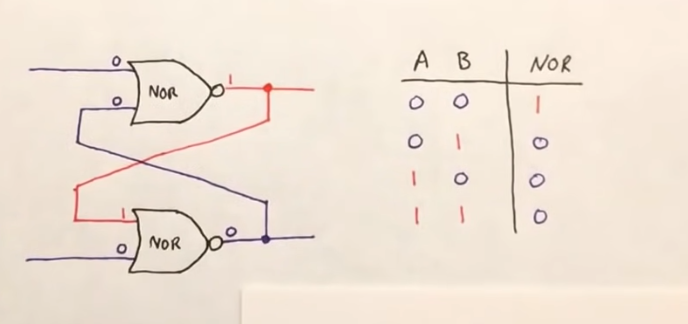 0
0
NOR
1
1
0
NOR
0
A B NOR
0 0 1
0 1 0
1 0 0
1 1 0